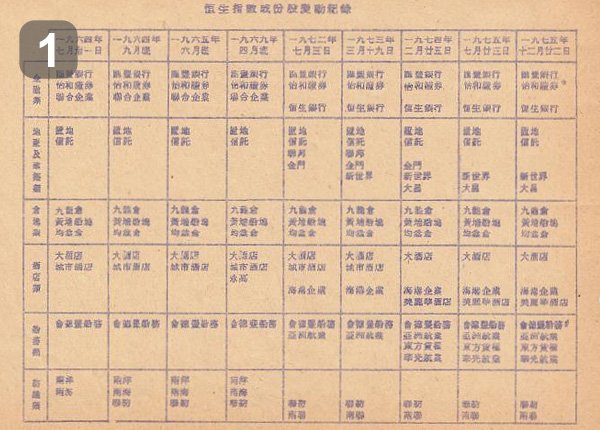 恒生指數成份股變動紀錄
1
一九六四年 一九六四年 一九六五年 一九六九年 一九七二年 一九七三年 一九七四年 一九七五年 一九七五年
七月卅一日 九月底 六月底 四月底 七月三日 三月十九日 二月廿五日 七月廿三日 十二月廿二日
金融業
滙豐銀行 滙豐銀行 滙豐銀行 滙豐銀行 滙豐銀行 滙豐銀行 滙豐銀行 滙豐銀行 滙豐銀行
怡和證券 怡和證券 怡和證券 怡和證券 怡和證券 怡和證券 怡和證券 怡和證券
聯合企業 聯合企業 聯合企業 聯合企業
恒生銀行 恒生銀行 恒生銀行 恒生銀行 恒生銀行
地產及
置地 置地 置地 置地 置地 置地 置地 置地 置地
信託 信託 信託 信託 信託 信託 信託 信託 信託
聯邦 聯邦
金門 金門 金門
新世界 新世界 新世界 新世界
大昌 大昌 大昌
九龍倉 九龍倉 九龍倉 九龍倉 九龍倉 九龍倉 九龍倉 九龍倉 九龍倉
黃埔船塢 黃埔船塢 黃埔船塢 黃埔船塢 黃埔船塢 黃埔船塢 黃埔船塢 黃埔船塢 黃埔船塢
均益倉 均益倉 均益倉 均益倉 均益倉 均益倉 均益倉 均益倉 均益倉
酒店業
大酒店 大酒店 大酒店 大酒店 大酒店 大酒店 大酒店 大酒店 大酒店
城市酒店 城市酒店 城市酒店 城市酒店 城市酒店
海港企業 海港企業 海港企業 海港企業 海港企業
美麗華酒店 美麗華酒店 美麗華酒店
船務業
會德豐船務 會德豐船務 會德豐船務 會德豐船務 會德豐船務 會德豐船務 會德豐船務 會德豐船務 會德豐船務
亞洲航業 亞洲航業 亞洲航業 亞洲航業 亞洲航業
東方貨櫃 東方貨櫃 東方貨櫃
華光航業 華光航業 華光航業
紡織業
南洋 南洋 南洋 南洋
南海 南海 南海 南海
聯紡 聯紡 聯紡 聯紡 聯紡 聯紡 聯紡
南聯 南聯 南聯 南聯